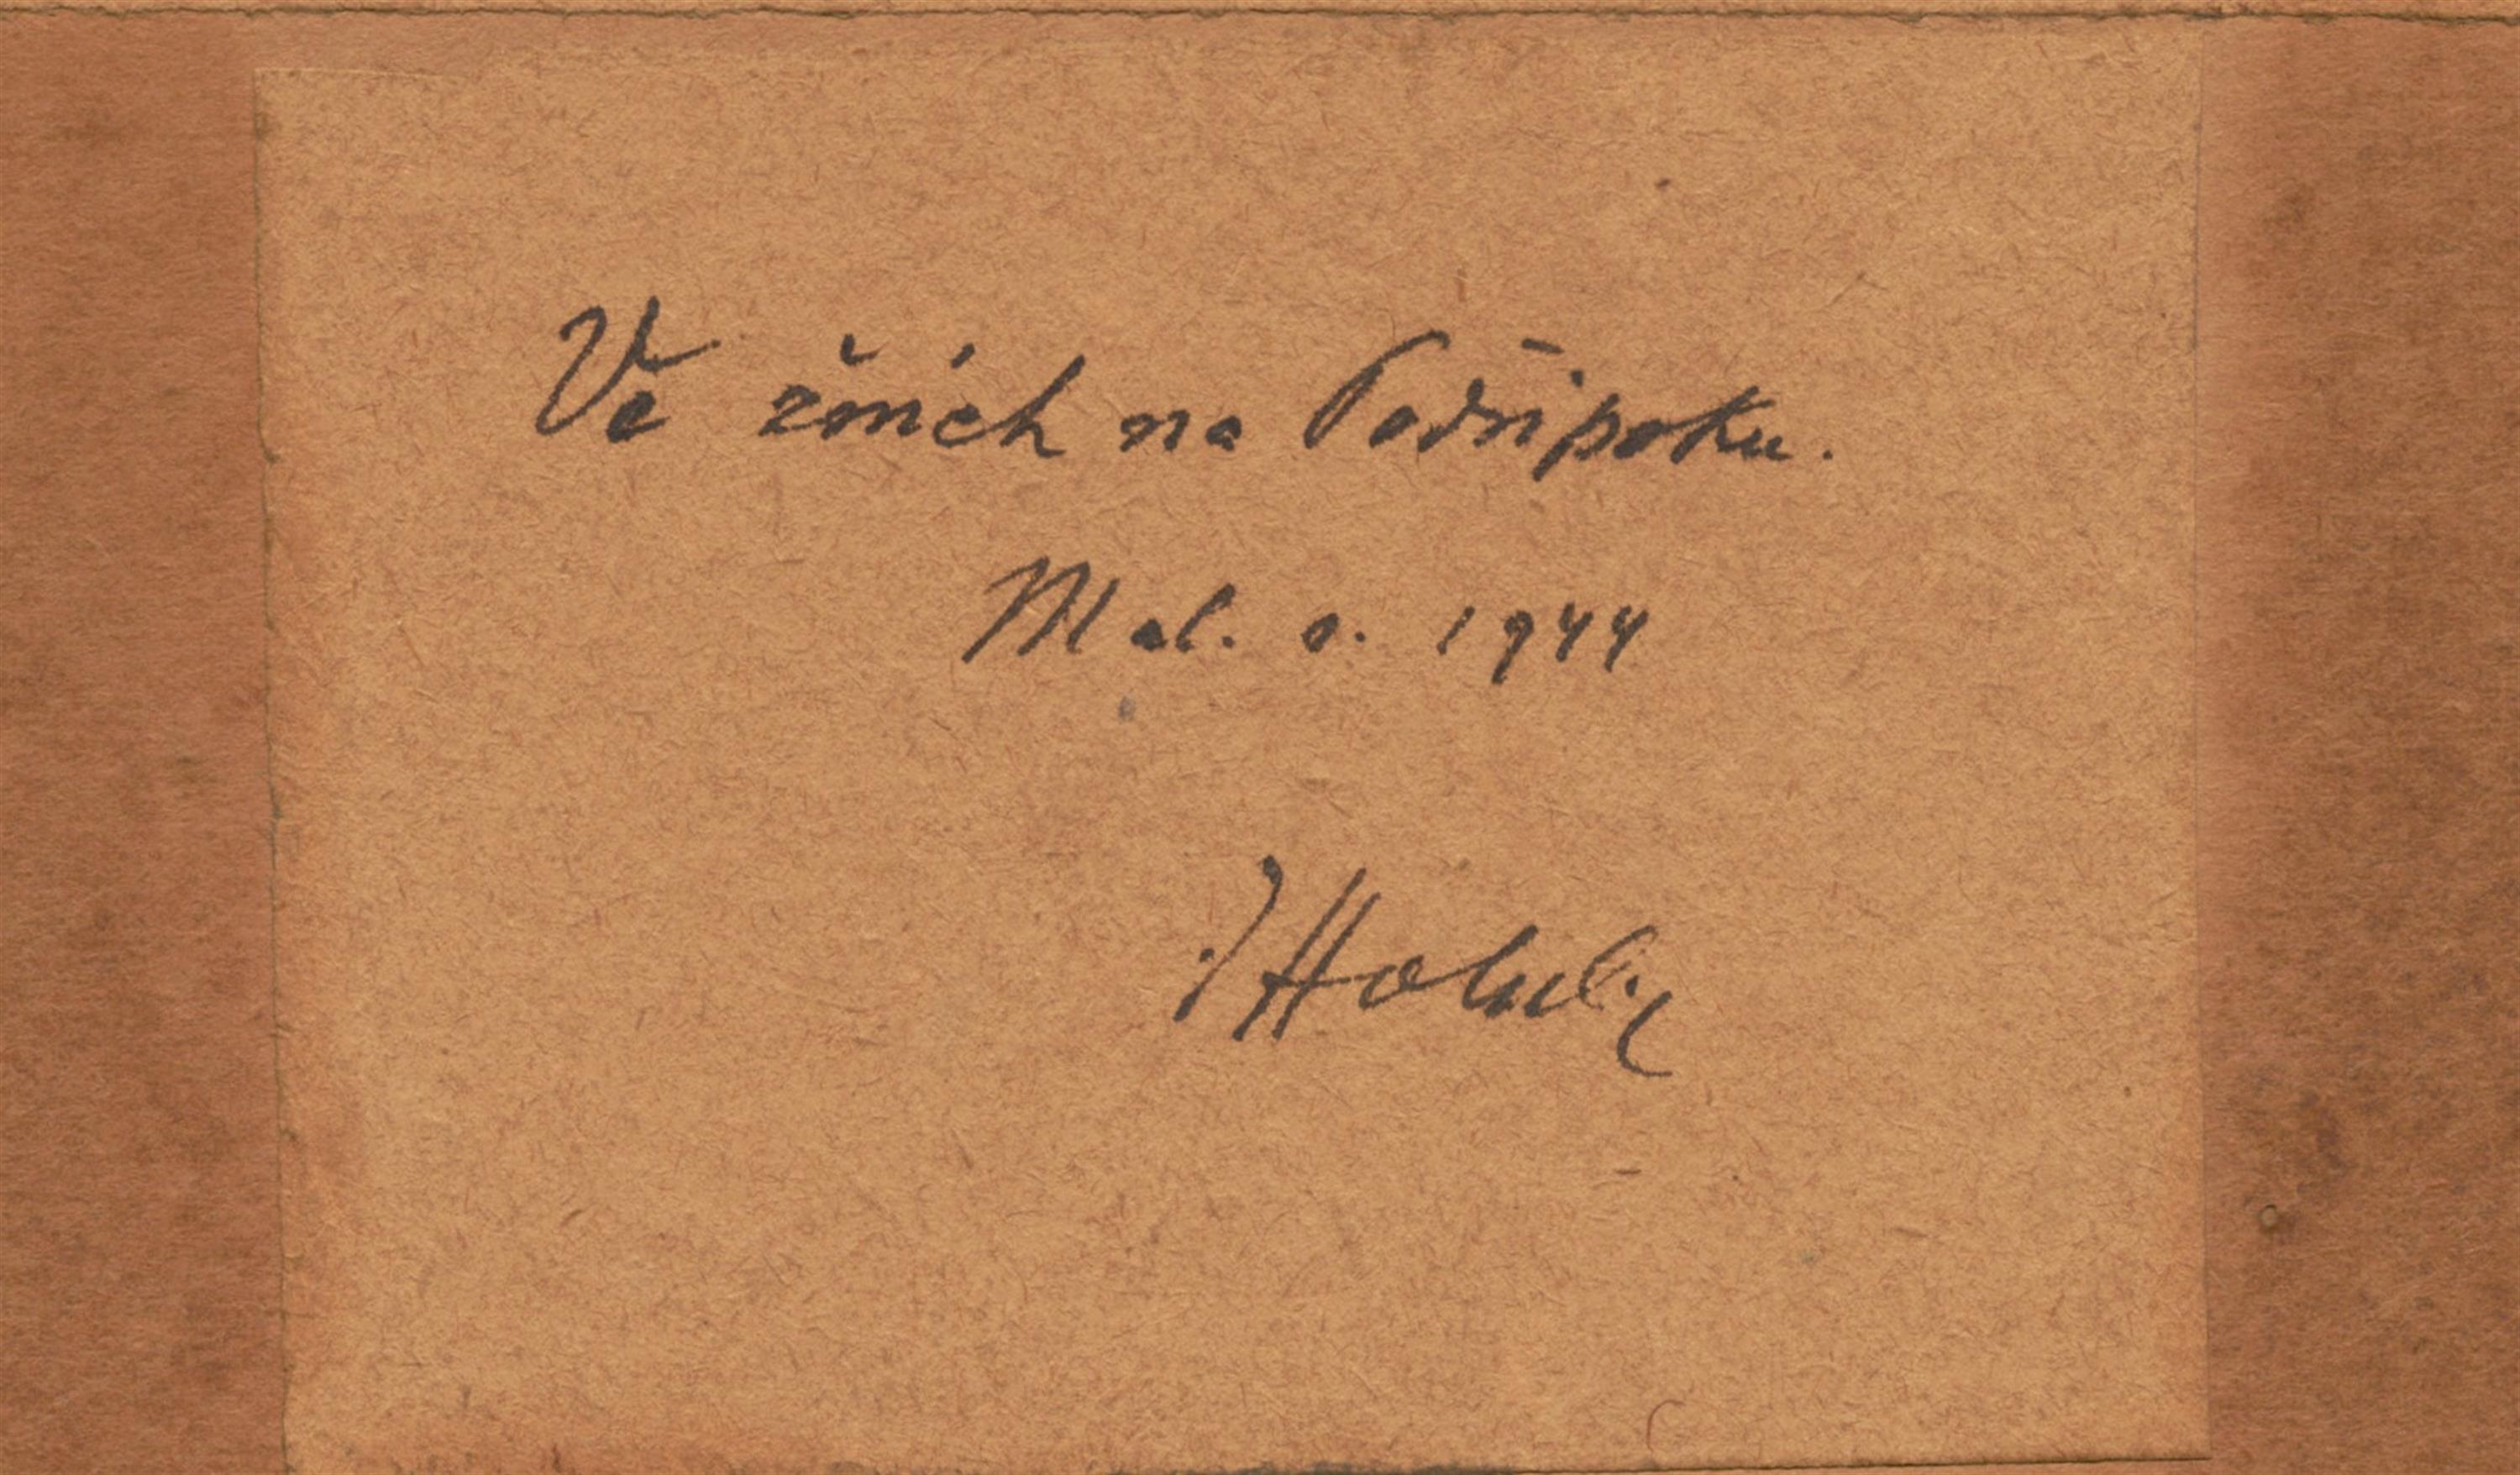 Ve žních na Podřipsku.
Mal. r. 1944
JHoluby